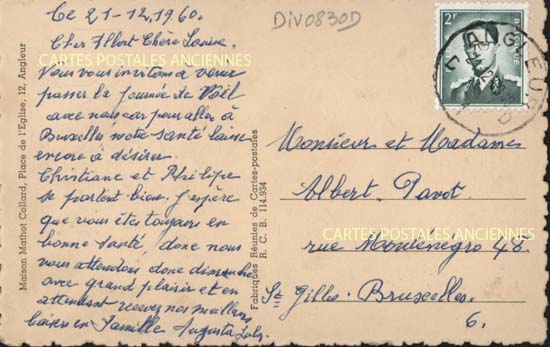 Ce 21-12,1960.
Div0830D
Cher Albert Chère Louise.
CARTES POSTALES ANCIENNES
Vous vous invitons a venir
passer la journée de Noël
avec nous car pour aller à
Bruxelles notre santé laisse
encore à désirer.
Christiane et Philippe
se portent bien. J'espère
que vous êtes toujours en
bonne santé, donc nous
vous attendons donc dimanche
avec grand plaisir et en
attendant recevez nos meilleurs
baisers en famille Augusta
Maison Mathot Collard, Place de l'Eglise, 12, Angleur
Fabriques Réunies de Cartes-postales
R. C. B. 114.934
2F
ANGLEUR
Monsieur et Madame
Albert. Pavot.
CARTES POSTALES ANCIENNES
rue Monténégro 48.
St Gilles. Bruxelles.
6.
CARTES POSTALES ANCIENNES